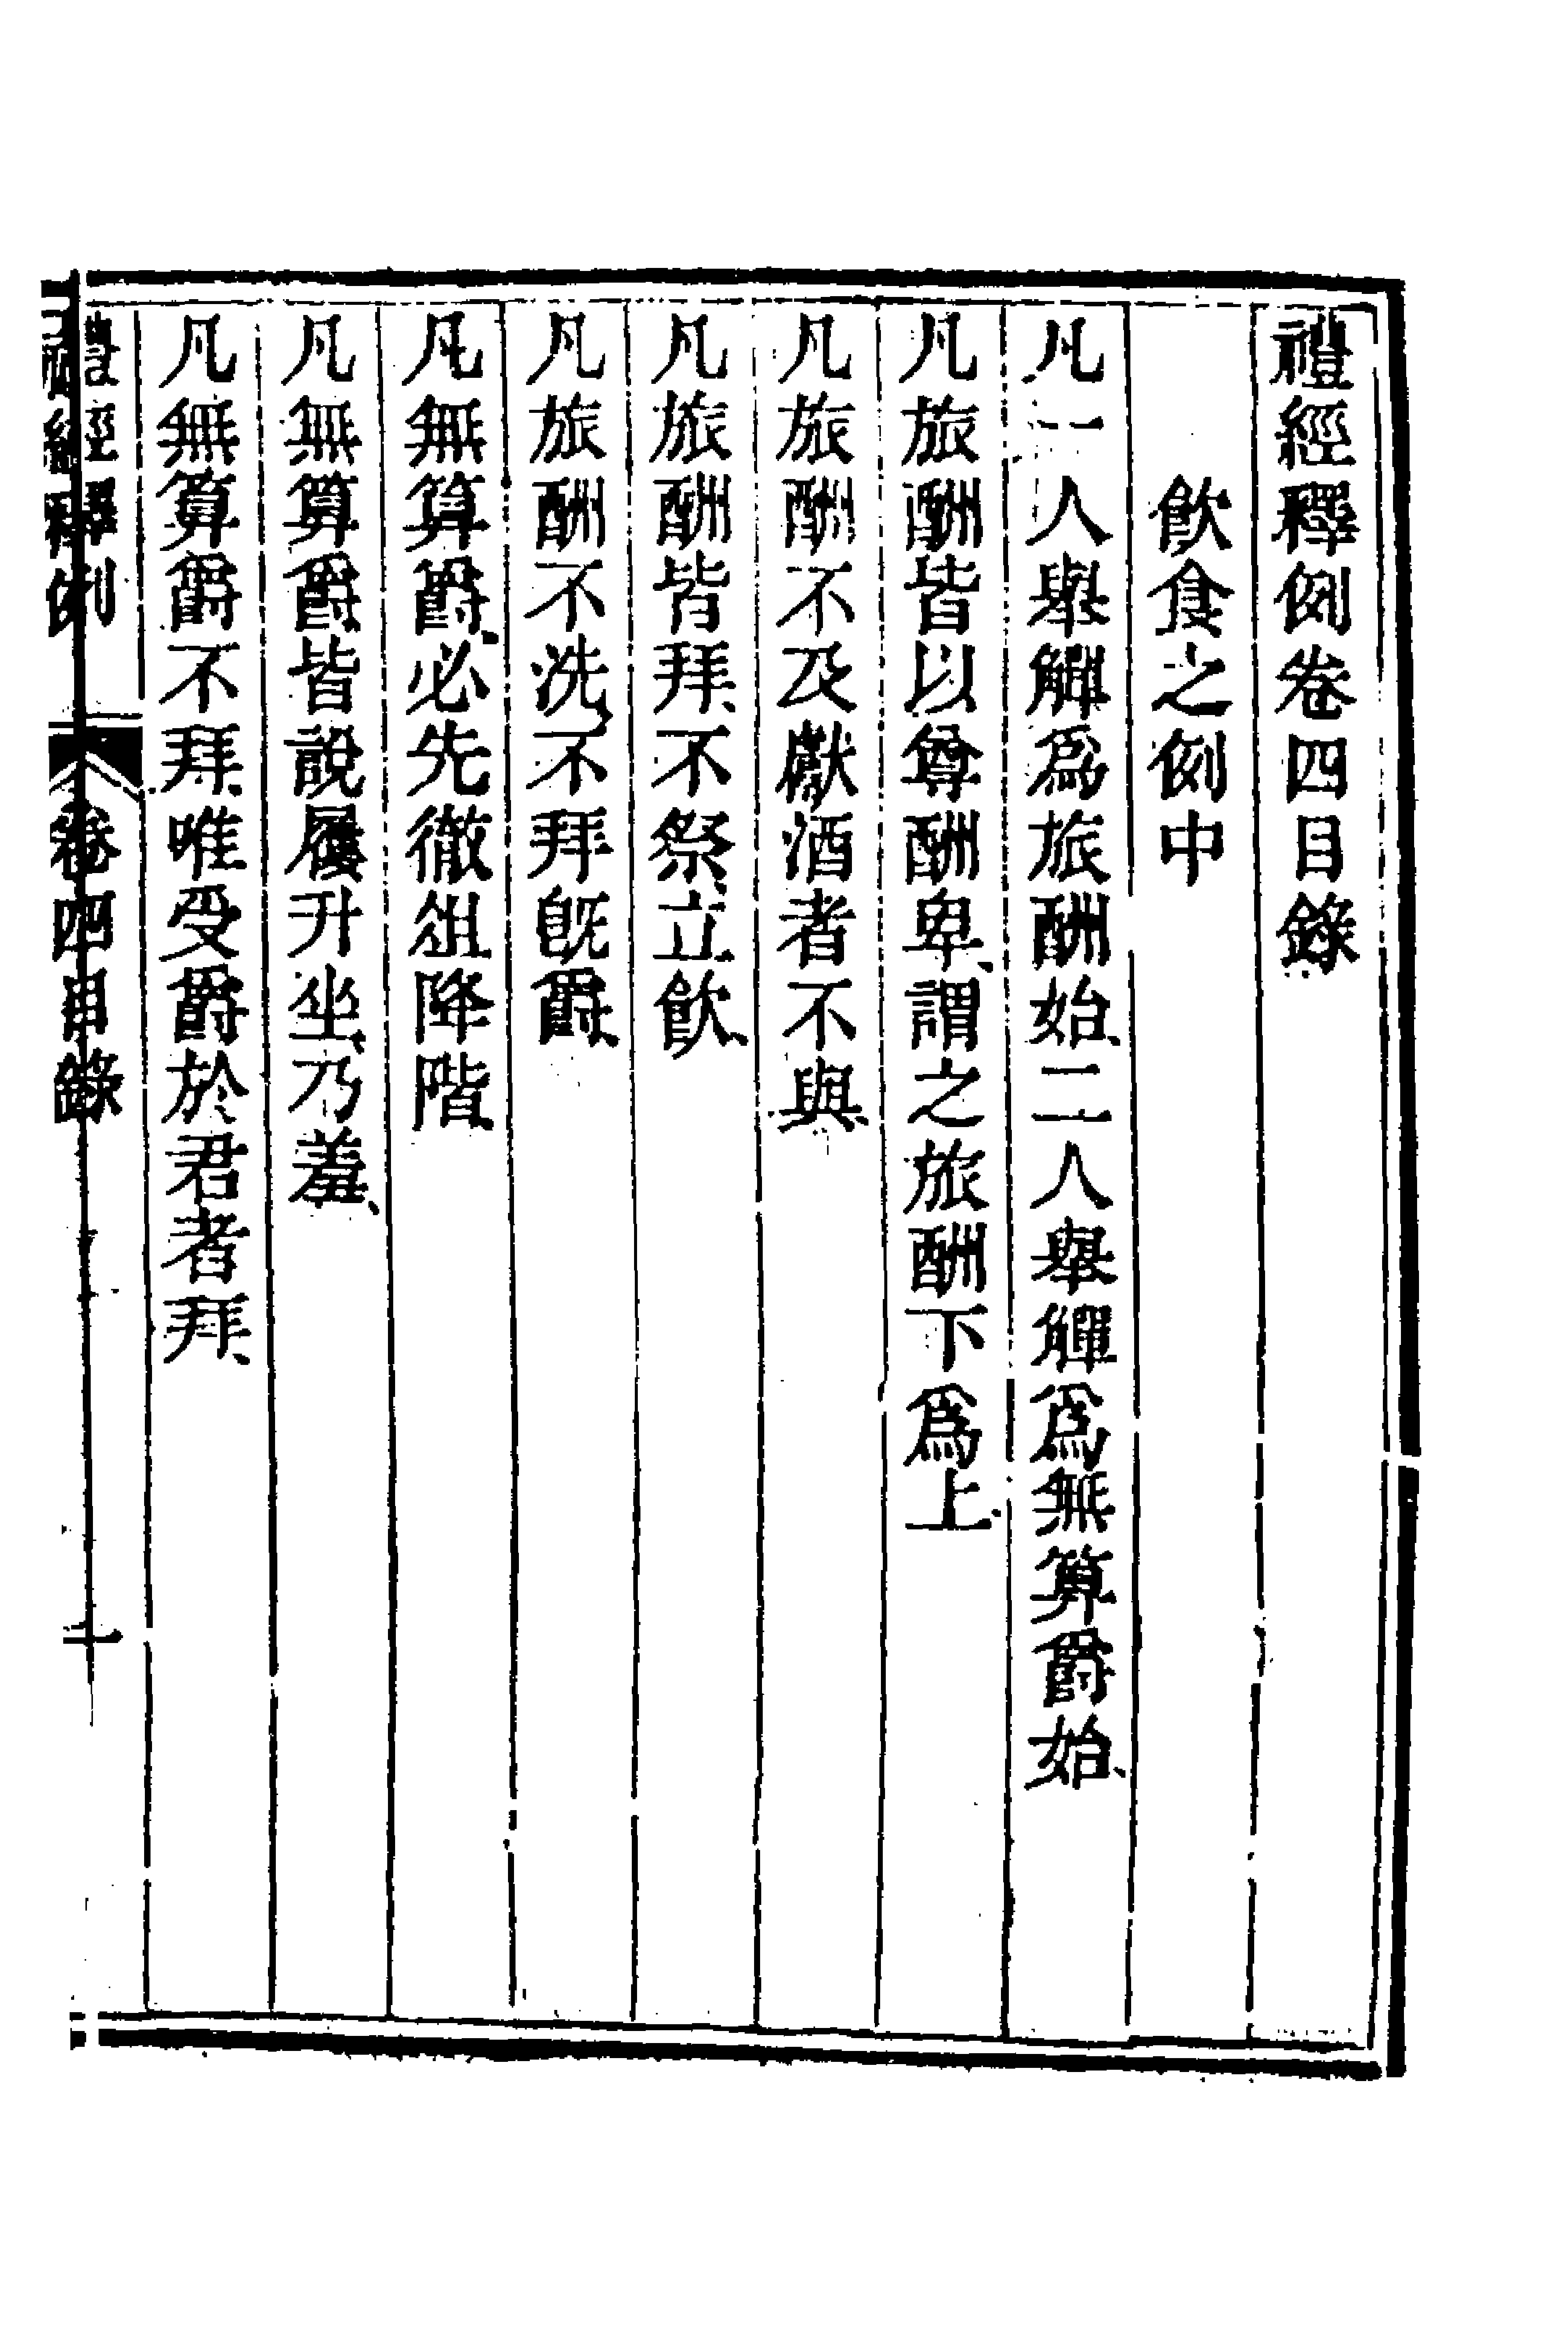 禮經釋例卷四目錄
飮食之例中
凡一人舉觶爲旅酬始、二人舉觶爲無算爵始、
凡旅酬皆以尊酬卑、謂之旅酬下爲上、
凡旅酬不及獻酒者不與、
凡旅酬皆拜、不祭、立飮、
凡旅酬不洗、不拜旣爵、
凡無算爵、必先徹俎降階、
凡無算爵皆說屨升坐、乃羞、
凡無算爵不拜、唯受爵於君者拜、
禮經釋例 卷四目錄 一